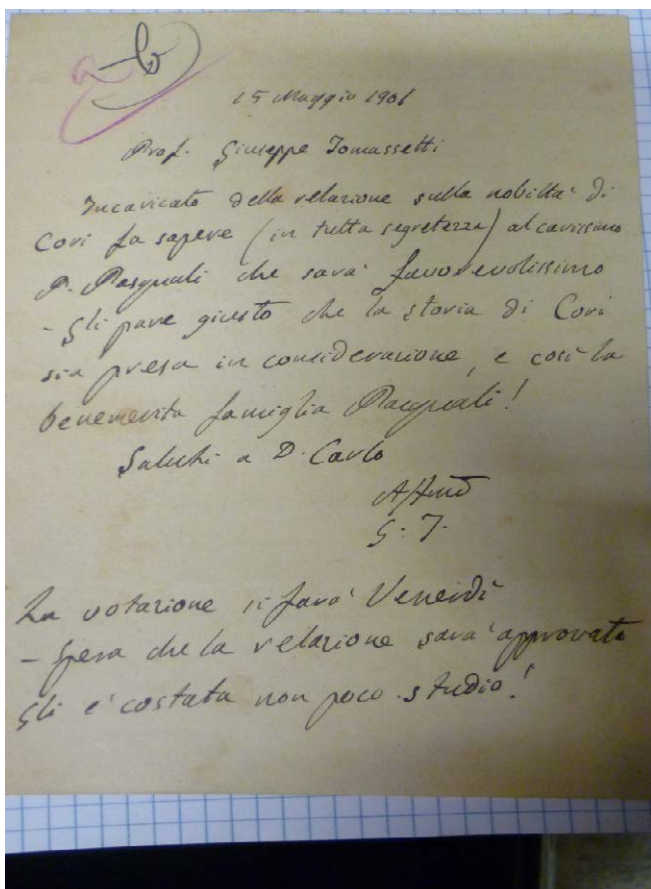 b
15 Maggio 1901
Prof. Giuseppe Tomassetti
Incaricato della relazione sulla nobiltà di
Cori fa sapere (in tutta segretezza) al carissimo
P. Pasquali che sarà favorevolissimo
- Gli pare giusto che la storia di Cori
sia presa in considerazione, e così la
benemerita famiglia Pasquali!
Saluti a D. Carlo
Affmo
G. T.
La votazione si farà Venerdì
- Spera che la relazione sarà approvata
Gli è costata non poco studio!